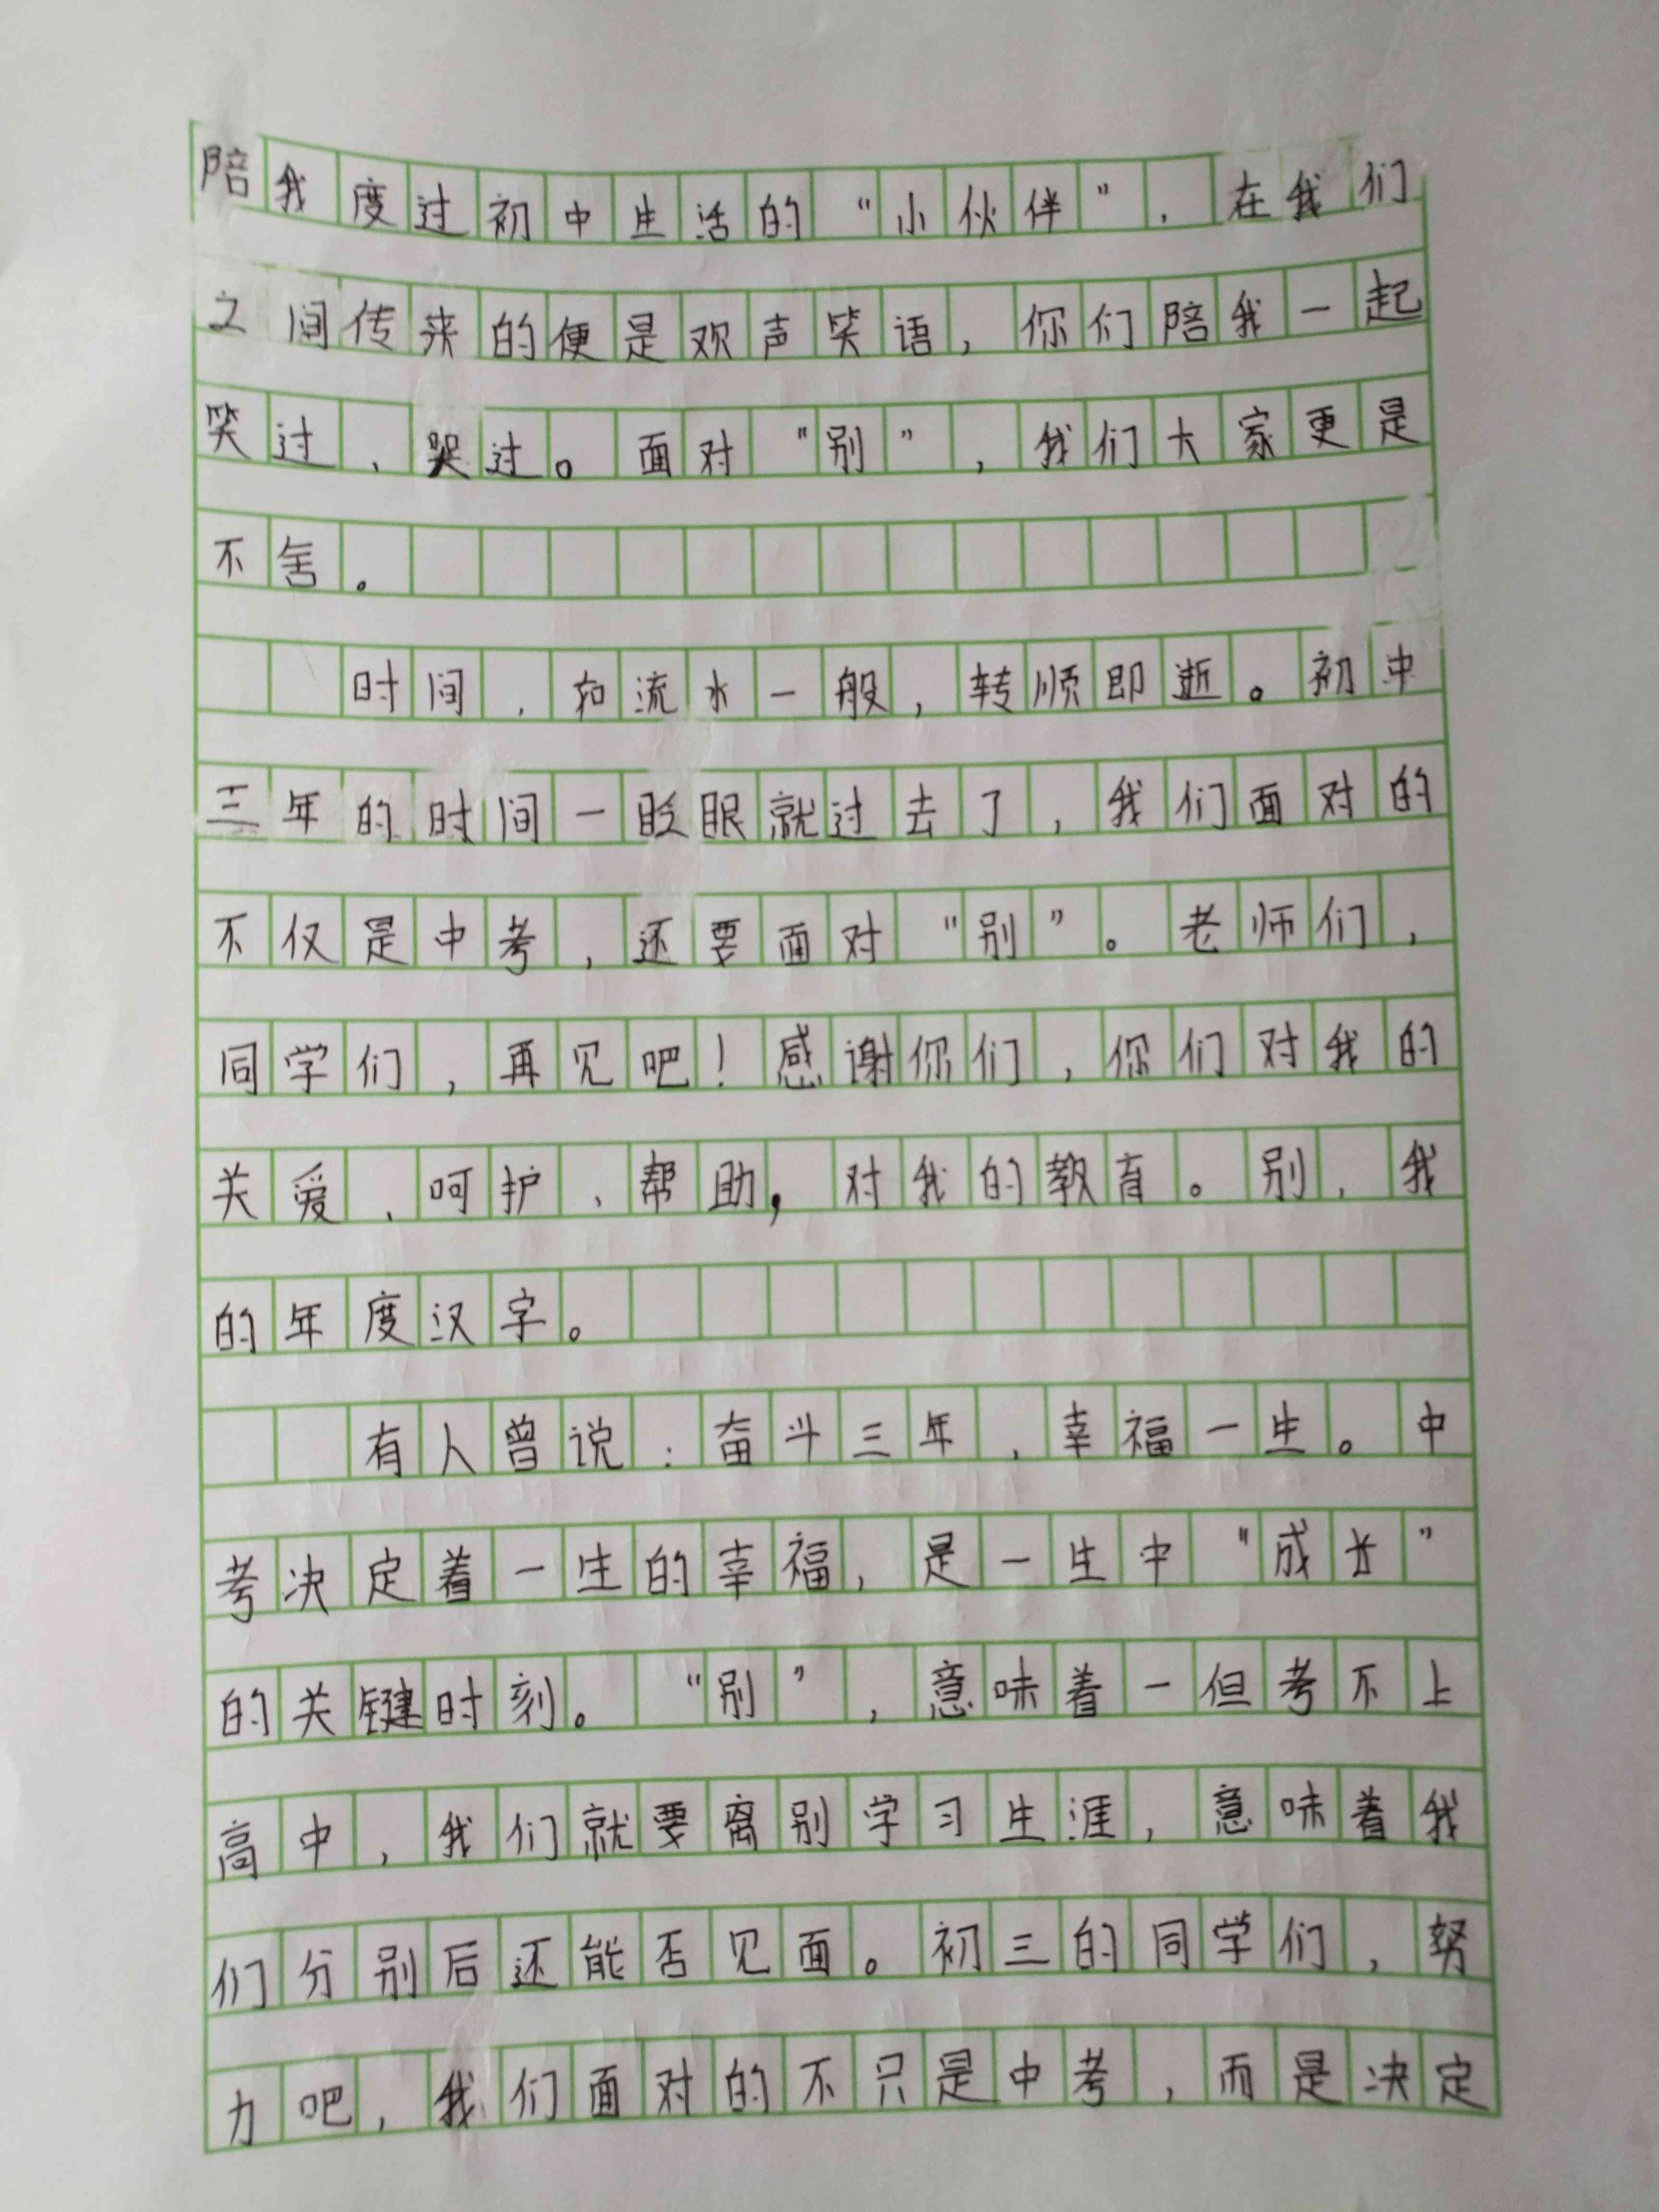 陪我度过初中生活的“小伙伴”，在我们
之间传来的便是欢声笑语，你们陪我一起
笑过、哭过。面对“别”，我们大家更是
不舍。
时间，如流水一般，转顺即逝。初中
三年的时间一眨眼就过去了，我们面对的
不仅是中考，还要面对“别”。老师们，
同学们，再见吧！感谢你们，你们对我的
关爱、呵护、帮助，对我的教育。别，我
的年度汉字。
有人曾说：奋斗三年，幸福一生。中
考决定着一生的幸福，是一生中“成长”
的关键时刻。“别”，意味着一但考不上
高中，我们就要离别学习生涯，意味着我
们分别后还能否见面。初三的同学们，努
力吧，我们面对的不只是中考，而是决定